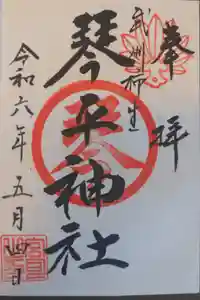 奉拝
武州柳生
琴平神社
令和六年五月四日